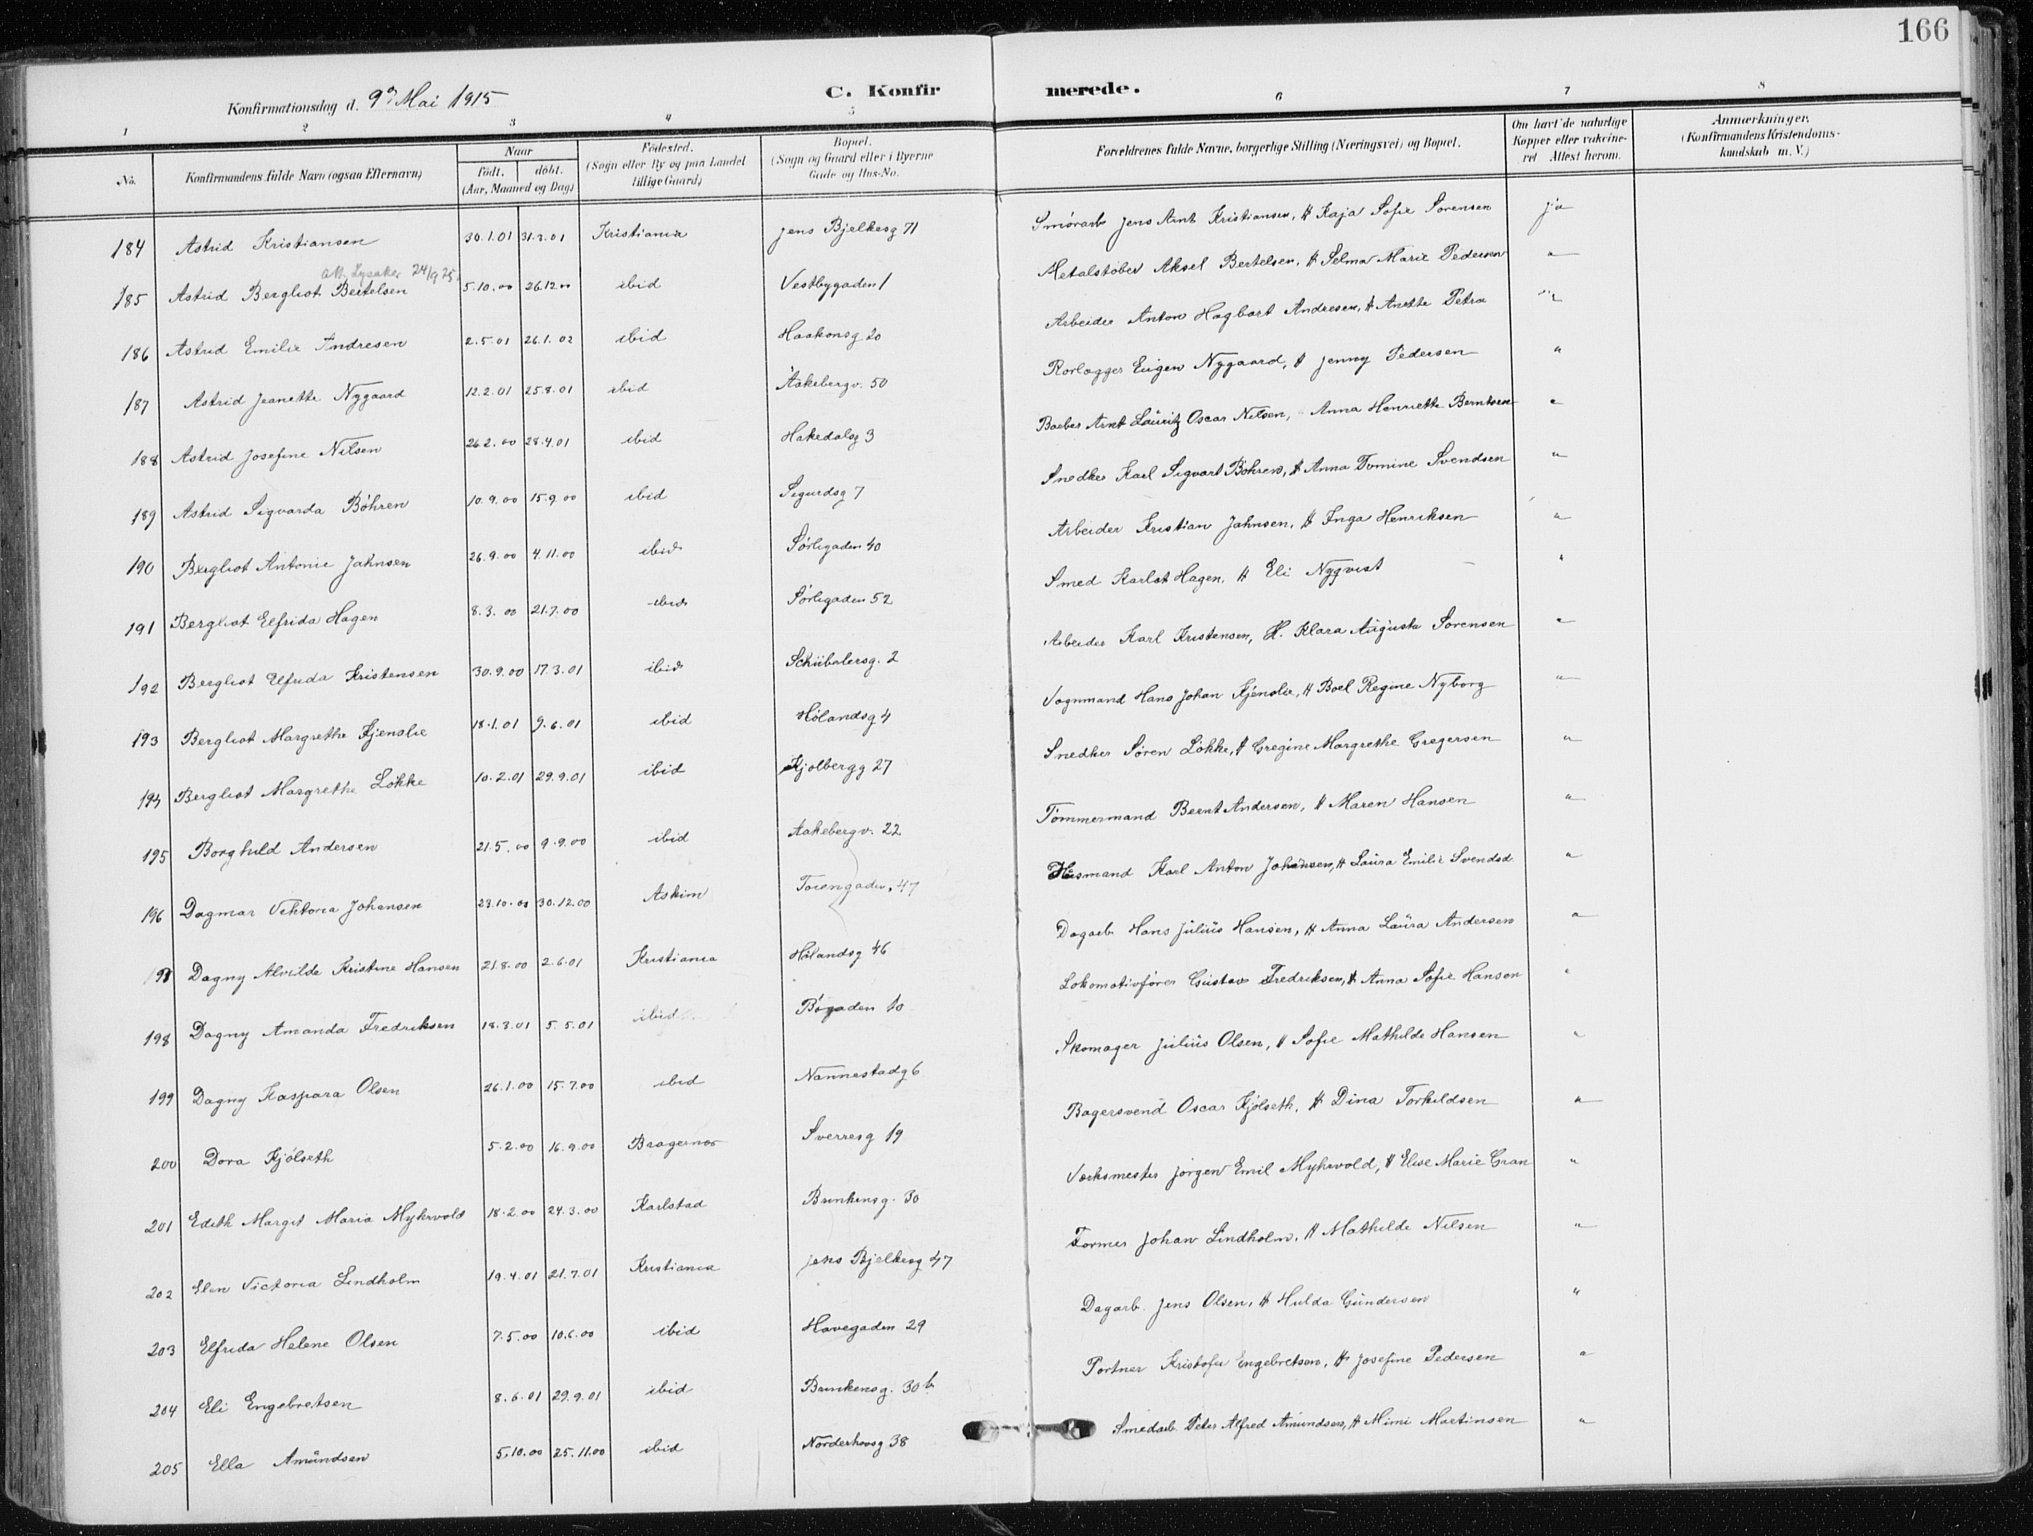 166
Konfirmationsdag d. 9de Mai 1915 C. Konfirmerede.
1 2 3 4 5 6 7 8
No. Konfirmandens fulde Navn (ogsaa Efternavn) Naar født. døbt. (Aar, Maaned og Dag) Fødested. (Sogn eller By og paa Landet tillige Gaard) Bopæl. (Sogn og Gaard eller i Byerne Gade og Hus-No. Forældrenes fulde Navne, borgerlige Stilling (Næringsvei) og Bopæl. Om havt de naturlige Kopper eller vakcineret Attest herom. Anmærkninger. (Konfirmandens Kristendomskundskab m. V.)
184 Astrid Kristiansen 30.1.01 31.3.01 Kristiania Jens Bjelkesg 71 Smørarb Jens Arnt Kristiansen, H Kaja Sofie Sorensen ja
att. Lysaker 24/9 25
185 Astrid Bergliot Bertelsen 5.10.00 26.12.00 ibid Vestbygaden 1 Metalstøber Aksel Bertelsen, H Selma Marie Pedersen "
186 Astrid Emilie Andresen 2.5.01 26.1.02 ibid Haakonsg 20 Arbeider Anton Hagbart Andresen, H Anette Petra "
187 Astrid Jeanette Nygaard 12.2.01 25.8.01 ibid Aakebergv. 50 Rorlægger Eugen Nygaard, H Jenny Pedersen "
188 Astrid Josefine Nilsen 26.2.00 28.4.01 ibid Hakedalsg 3 Barber Arnt Lauritz Oscar Nilsen, Anna Henriette Berntsen "
189 Astrid Sigvarda Böhren 10.9.00 15.9.00 ibid Sigurdsg 7 Snedker Karl Sigvart Böhren, H Anna Tomine Svendsen "
190 Bergliot Antonie Jahnsen 26.9.00 4.11.00 ibid Sørligaden 40 Arbeider Kristian Jahnsen, H Inga Henriksen "
191 Bergliot Elfrida Hagen 8.3.00 21.7.00 ibid Sørligaden 52 Smed Karlot Hagen, H Eli Nyqvist "
192 Bergliot Elfrida Kristensen 30.9.00 17.3.01 ibid Schübelersg. 2 Arbeider Karl Kristensen, H. Klara Augusta Sorensen "
193 Bergliot Margrethe Kjenslie 18.1.01 9.6.01 ibid Hølandsg 4 Vognmand Hans Johan Kjenslie, H Boel Regine Nyborg "
194 Bergliot Margrethe Løkke 10.2.01 29.9.01 ibid Kjolbergg 27 Snedker Søren Løkke, H Gregine Margrethe Gregersen "
195 Borghild Andersen 21.5.00 9.9.00 ibid Aakebergv. 22 Tømmermand Bernt Andersen, H Maren Hansen "
196 Dagmar Viktoria Johansen 23.10.00 30.12.00 Askim Toiengaden 47 Husmand Karl Anton Johansen, H Laura Emilie Svendsd. "
198 Dagny Alvilde Kristine Hansen 21.8.00 2.6.01 Kristiania Hølandsg 46 Dagarb Hans Julius Hansen, H Anna Laura Andersen "
198 Dagny Amanda Fredriksen 18.3.01 5.5.01 ibid Bøgaden 10 Lokomotivfører Gustav Fredriksen, H Anna Sofie Hansen "
199 Dagny Kaspara Olsen 26.1.00 15.7.00 ibid Nannestadg 6 Skomager Julius Olsen, H Sofie Mathilde Hansen "
200 Dora Kjølseth 5.2.00 16.9.00 Bragernæs Sverresg 19 Bagersvend Oscar Kjølseth, H Dina Torkildsen "
201 Edith Margit Maria Myhrvold 18.2.00 24.3.00 Karlstad Brinkensg. 30 Værksmester Jørgen Emil Myhrvold, H Elise Marie Gran "
202 Elen Victoria Lindholm 19.4.01 21.7.01 Kristiania Jens Bjelkesg 47 Former Johan Lindholm, H Mathilde Nilsen "
203 Elfrida Helene Olsen 7.5.00 10.6.00 ibid Havegaden 29 Dagarb. Jens Olsen, H Hulda Gundersen "
204 Eli Engebretsen 8.6.01 29.9.01 ibid Brinkensg. 30 b Portner Kristofer Engebretsen, H Josefine Pedersen "
205 Ella Amundsen 5.10.00 25.11.00 ibid Norderhovsg 38 Smedarb Peter Alfred Amundsen, H Mimi Martinsen "